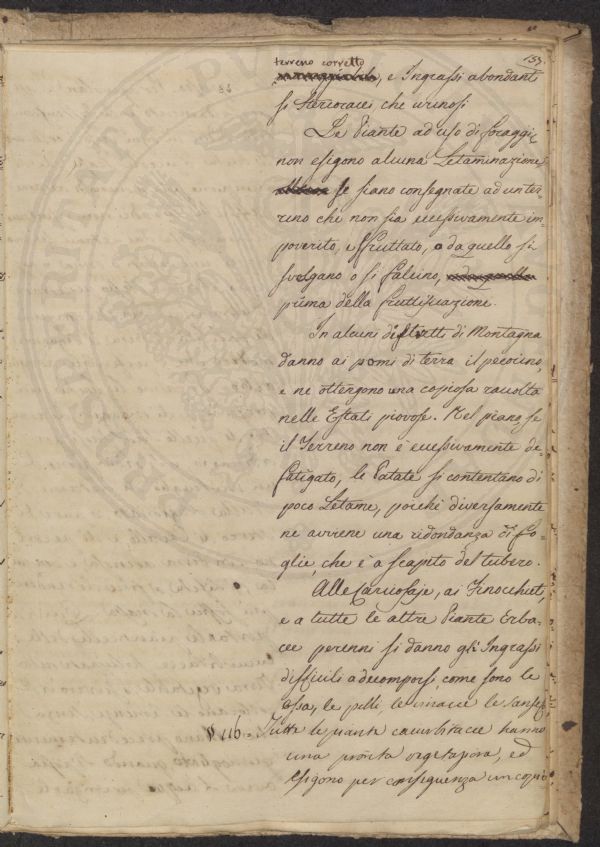 157.
terreno corretto
, e Ingrassi abondanti
si stercoracei che urinosi
Le Piante ad uso di foraggio
non esigono alcuna Letaminazione
se siano consegnate ad un ter-
reno che non sia eccessivamente im-
poverito, e sfruttato, o da quello si
svelgano o si falcino,
prima della fruttificazione.
In alcuni distretti di Montagna
danno ai pomi di terra il pecorino,
e ne ottengono una copiosa raccolta
nelle Estati piovose. Nel piano, se
il Terreno non è eccessivamente de
fatigato, le Patate si contentano di
poco Letame, poichè diversamente
ne avviene una ridondanza di fo-
glie, che è a scapito del tubero.
Alle Carciofaje, ai Finocchieti,
e a tutte le altre Piante Erba-
cee perenni si danno gli Ingrassi
difficili a decomporsi, come sono le
Ossa, le pelli, le vinacce le
§ 116. Tutte le piante cucurbitacee hanno
una pronta vegetazione, ed
esigono per conseguenza un copio